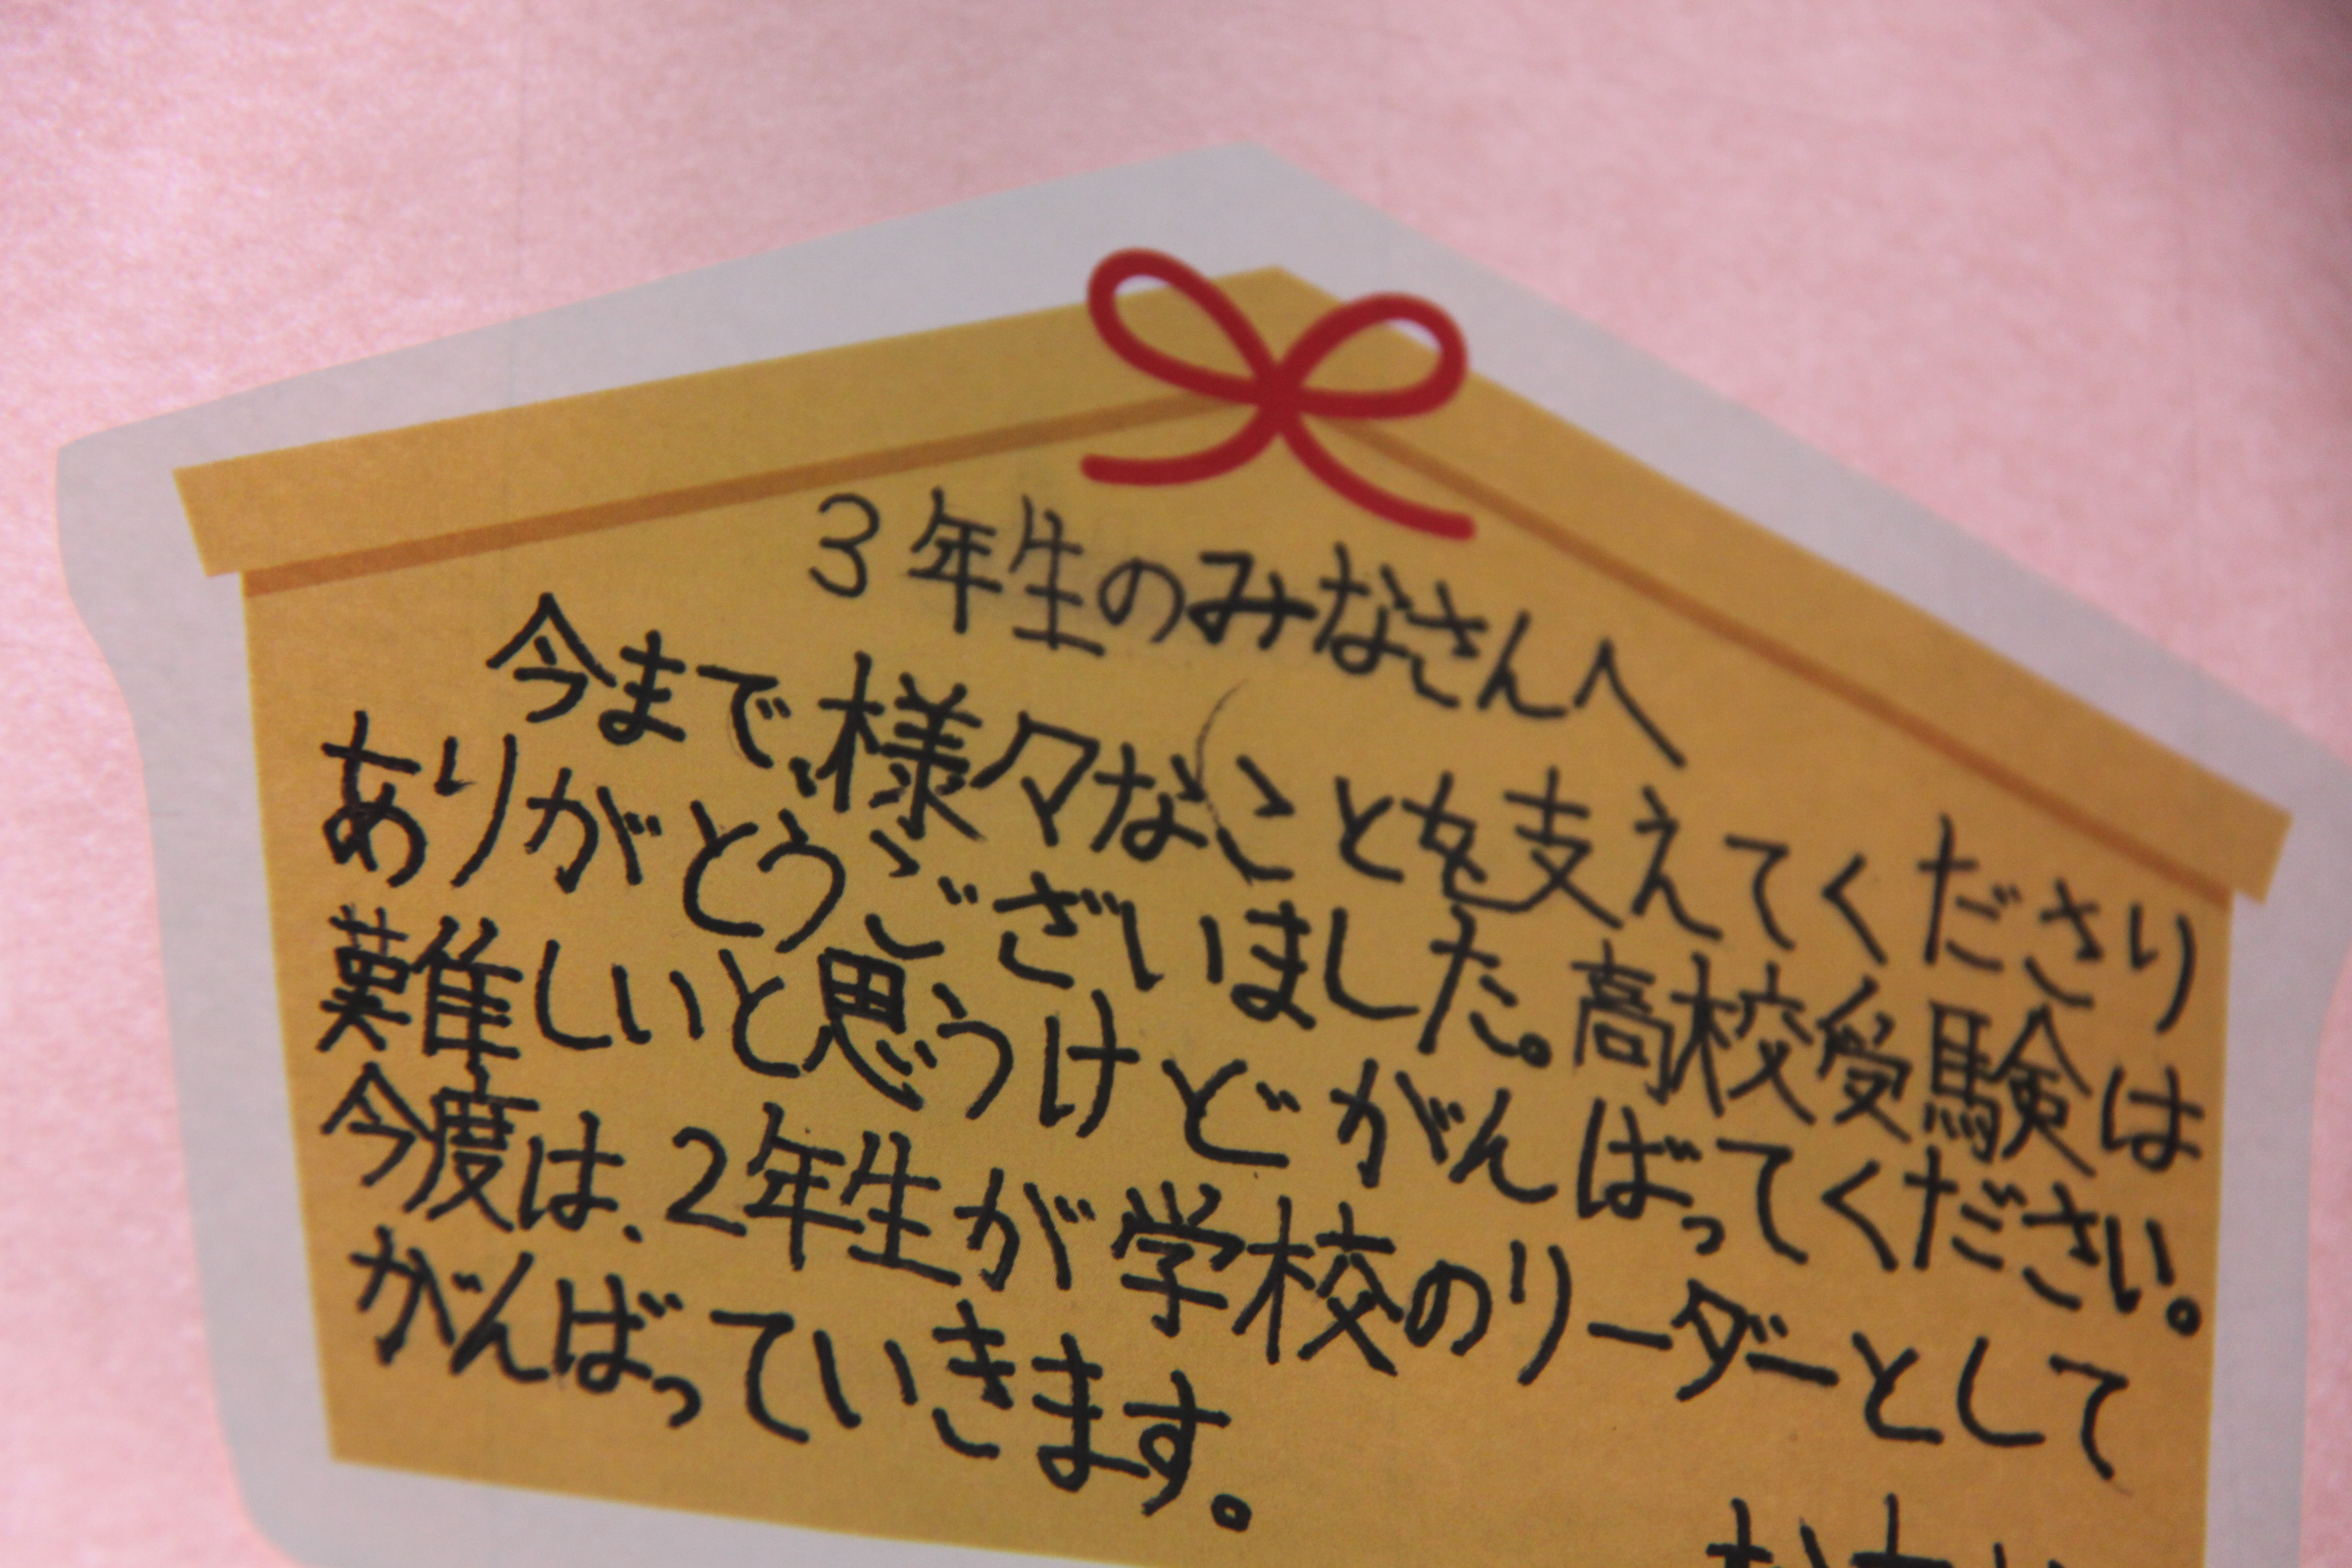 3年生のみなさんへ
今まで、様々なことを支えてくださり
ありがとうございました。高校受験は
難しいと思うけどがんばってください。
今度は、2年生が学校のリーダーとして
がんばっていきます。